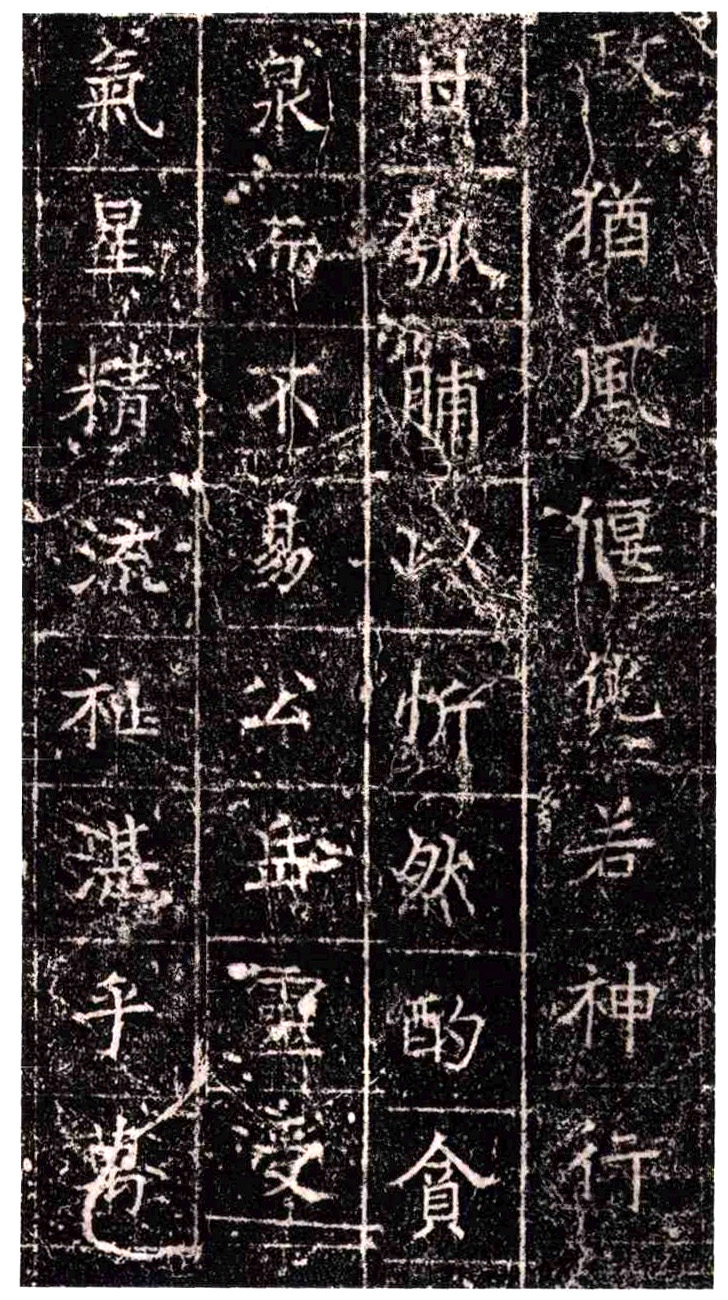 政猶風偃化若神行
甘瓠脯以忻然酌貪
泉而不易公垂靈受
氣星精流祉湛乎萬